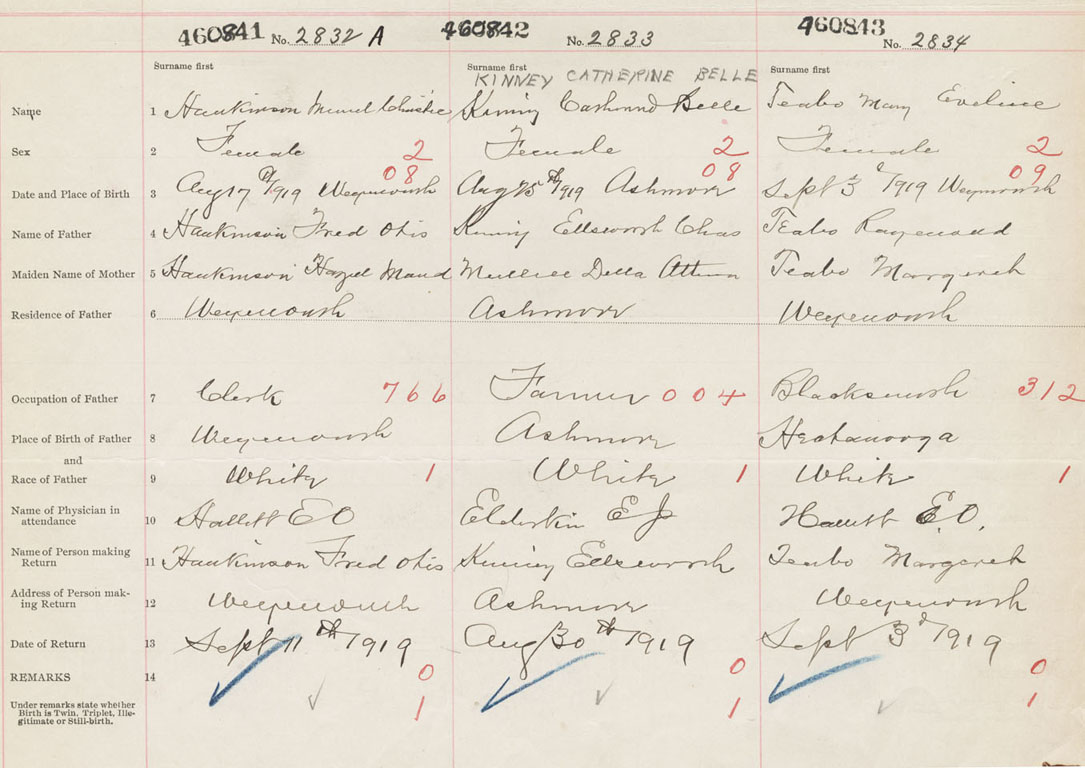 460841 No. 2832 A 460842 No. 2833 460843 No. 2834
Surname first Surname first Surname first
KINNEY CATHERINE BELLE
Name 1 Hankinson Muriel Christie Kinney Belle Teabo Mary Eveline
Sex 2 Female 2 Female 2 Female 2
08 08 09
Date and Place of Birth 3 Aug 17th/1919 Weymouth Aug 25th/1919 Ashmore Sept 3d/1919 Weymouth
Name of Father 4 Hankinson Fred Otis Kinney Ellsworth Chas Teabo Raymond
Maiden Name of Mother 5 Hankinson Hazel Maud Mullen Della Teabo Margaret
Residence of Father 6 Weymouth Ashmore Weymouth
Occupation of Father 7 Clerk 766 Farmer 004 Blacksmith 312
Place of Birth of Father 8 Weymouth Ashmore
and
Race of Father 9 White 1 White 1 White 1
Name of Physician in
attendance 10 Hallett E O Elderkin E J Hallett E.O.
Name of Person making
Return 11 Hankinson Fred Otis Kinney Ellsworth Teabo Margaret
Address of Person mak-
ing Return 12 Weymouth Ashmore Weymouth
Date of Return 13 Sept 11th/1919 Aug 30th/1919 Sept 3d/1919
REMARKS 14 0 0 0
Under remarks state whether
Birth is Twin, Triplet, Ille-
gitimate or Still-birth. 1 1 1